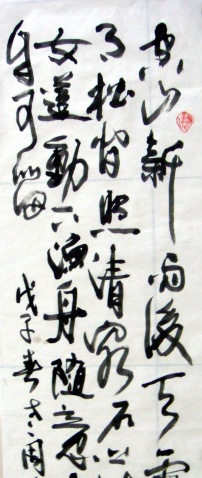 空山新雨後天
月松間照清泉石上
女蓮動下漁舟隨意
自可留
戊子春